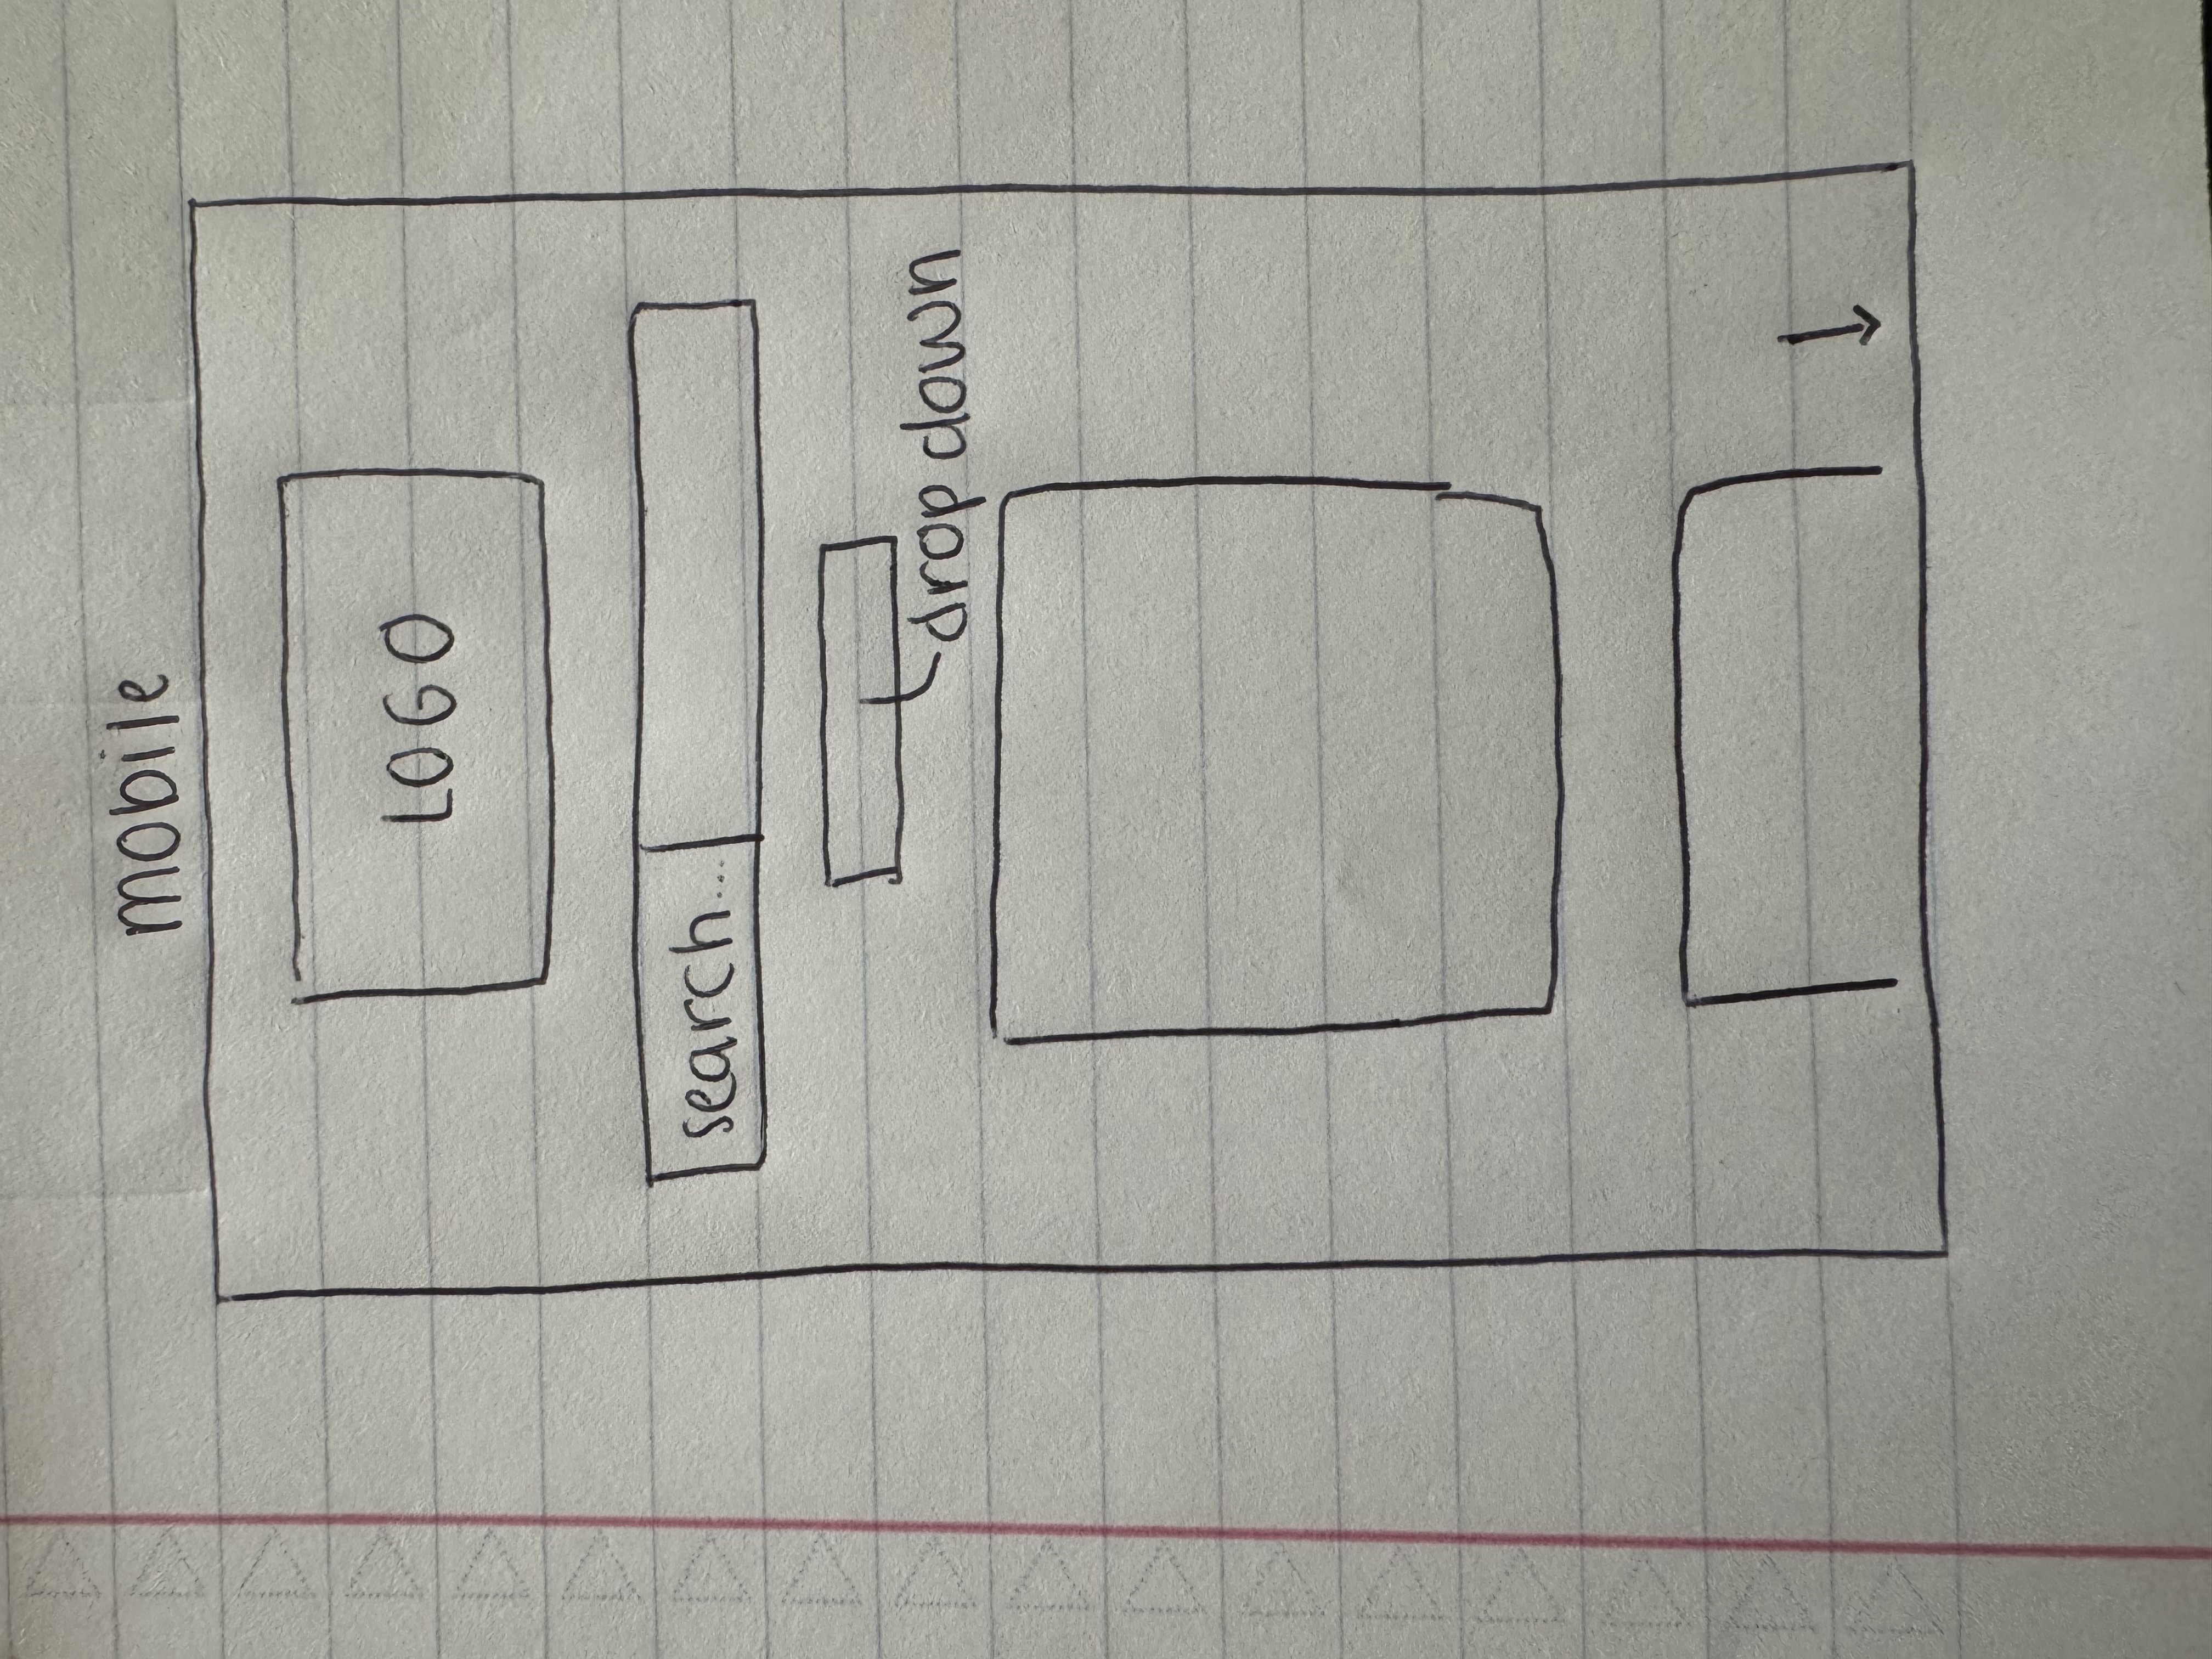 mobile
LOGO
search...
drop down